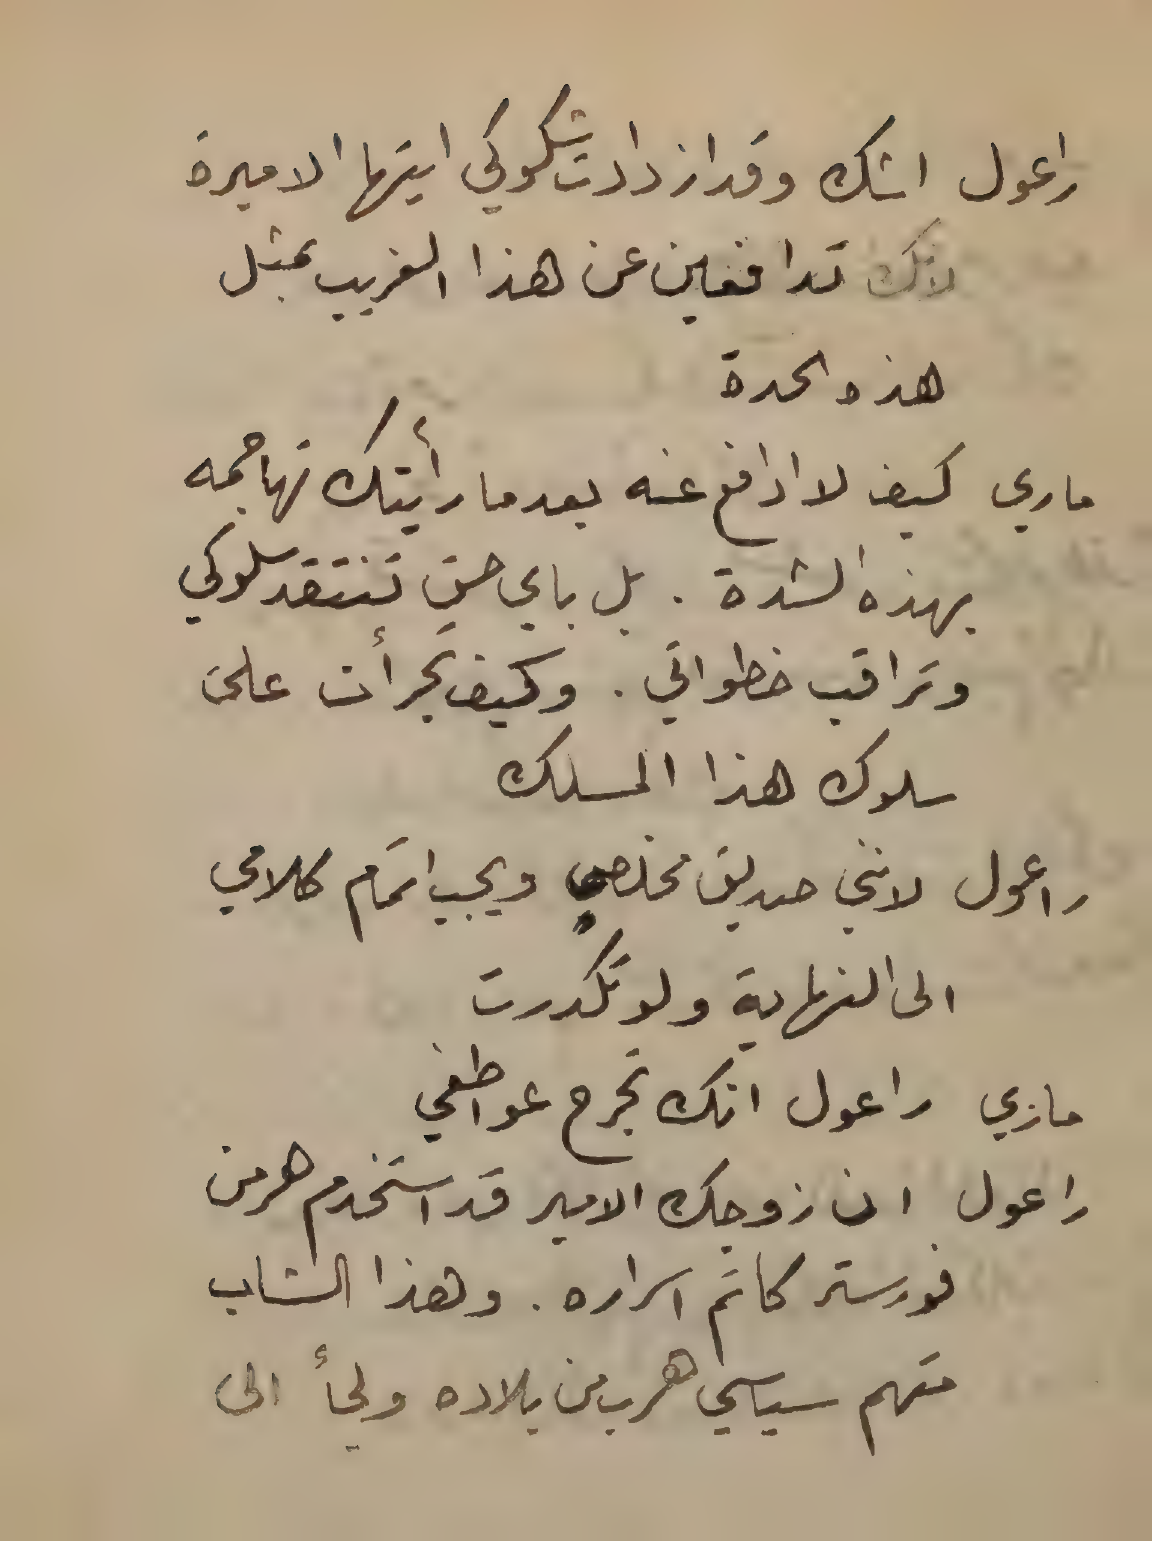 راعول اشك وقد ازدادت شكوكي ايتها الاميرة
لانك تدافعين عن هذا الغريب بمثل
هذه الحدة
ماري كيف لا ادافع عنه بعد ما رأيتك تهاجمه
بهذه الشدة . بل باي حق تنتقد سلوكي
وتراقب خطواتي . وكيف تجرأت على
سلوك هذا المسلك
راعول لانني صديق مخلص ويجب اتمام كلامي
الى النهاية ولو تكدرت
ماري راعول انك تجرح عواطفي
راعول ان زوجك الامير قد استخدم هرمن
فورستر كاتم اسراره . وهذا الشاب
متهم سياسي هرب من بلاده ولجأ الى